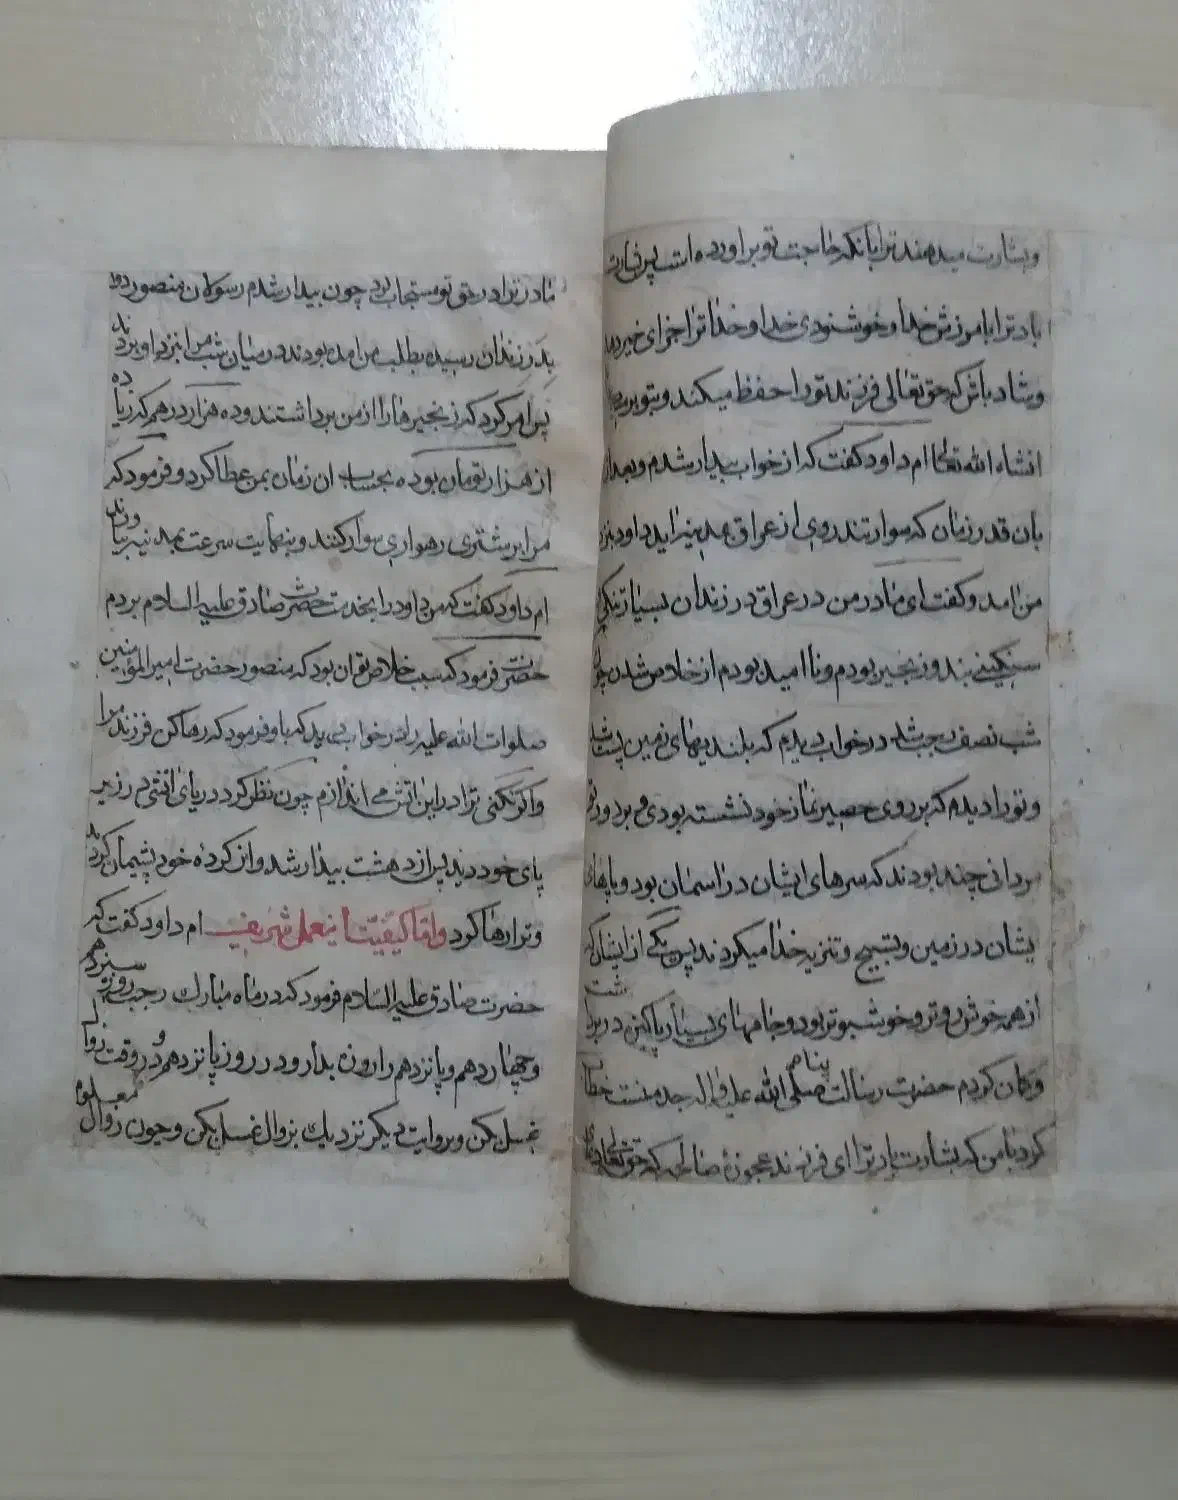 و بشارت میدهند ترا بانکه حاجت تو براورده است پس بشارت
باد ترا بامرزش خدا و خوشنودی خدا و خدا ترا جزای خیر دهد
و شاد باش که حق تعالی فرزند تو را حفظ میکند و بتو بر
انشاء الله تعالی ام داود کفت که از خواب بیدار شدم و بعد از
بان قدر زمان که سوار تندروی از عراق بمدینه اید داود بنزد
من امد و کفت ای مادر من در عراق در زندان بسیار تنکی
سنکینی بند و زنجیر بودم و نا امید بودم از خلاص شدن چون
شب نصف رجب شد در خواب دیدم که بلندیهای زمین پست شد
و تو را دیدم که بر روی حصیر نماز خود نشسته بودی و بر دور تو
مردانی چند بودند که سرهای ایشان در اسمان بود و پاهای
یشان در زمین و تسبیح و تنزیه خدا میکردند پس یکی از ایشان که
از همه خوش روتر و خوشبوتر بود و جامهای بسیار پاکیزه در بر داشت
و کمان کردم حضرت رسالت پناه صلی الله علیه و اله جد منست خطاب
کرد با من که بشارت باد ترا ای فرزند عجوزهٔ صالحه که حق تعالی دعای
مادر ترا در حق تو مستجاب کرد چون بیدار شدم رسولان منصور دوا
بدر زندان رسیده بطلب من امده بودند در میان شب مرا بنزد او بردند
پس امر کرد که زنجیرها را از من برداشتند و ده هزار درهم که زیاده
از هزار تومان بوده بحساب ان زمان بمن عطا کرد و فرمود که
مرا بر شتری رهواری سوار کنند و بنهایت سرعت بمدینه بیاورند
ام داود کفت که من داود را بخدمت حضرت صادق علیه السلام بردم
حضرت فرمود که سبب خلاص تو ان بود که منصور حضرت امیر المؤمنین
صلوات الله علیه را در خواب دید که باو فرمود که رها کن فرزند مرا
و اکر نکنی ترا در این اتش می اندازم چون نظر کرد دریای اتشی در زیر
پای خود دید پس از دهشت بیدار شد و از کرده خود پشیمان کردید
و ترا رها کرد و اما کیفیت اینعمل شریف ام داود کفت که
حضرت صادق علیه السلام فرمود که در ماه مبارک رجب روز سیزدهم
و چهاردهم و پانزدهم را روزه بدار و در روز پانزدهم در وقت زوال
غسل بکن و بروایت دیکر نزدیک بزوال غسل بکن و چون زوال